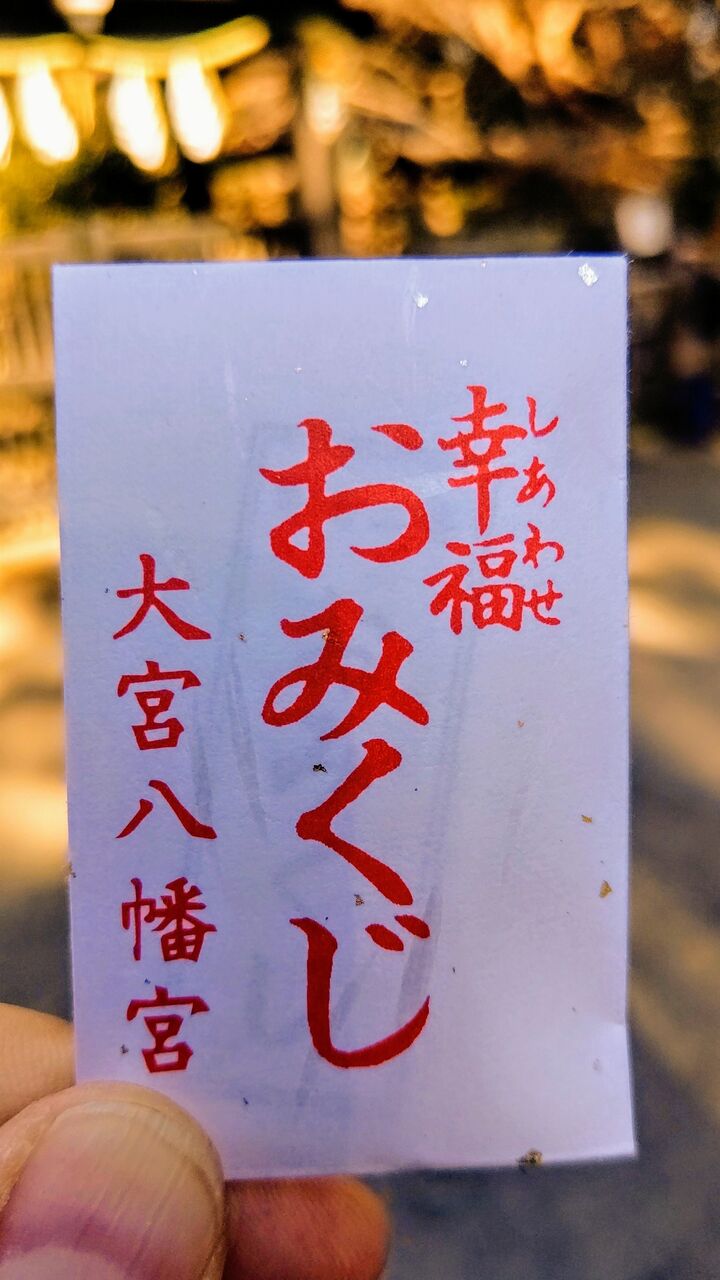 幸福
しあわせ
おみくじ
大宮八幡宮